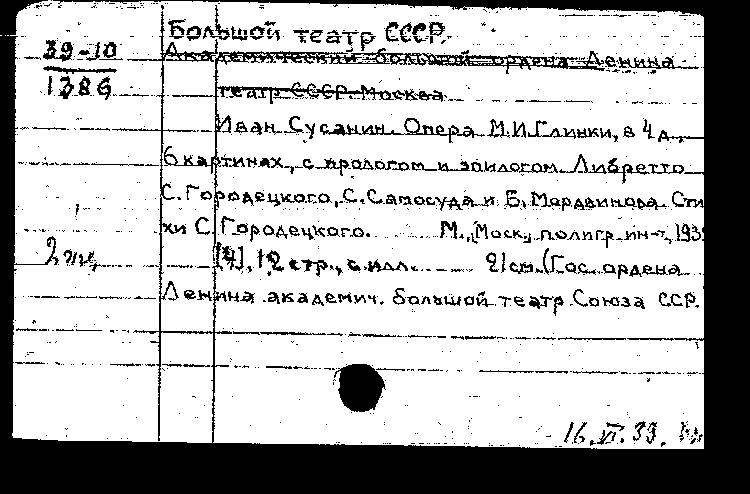 Большой театр СССР.
39-10
1386
Академический большой ордена Ленина
театр СССР. Москва
Иван Сусанин. Опера М.И.Глинки, в 4 д.,
6 картинах, с прологом и эпилогом. Либретто
С. Городецкого, С. Самосуда и Б. Мордвинова. Сти
хи С. Городецкого. М., Моск. полигр. ин-т, 1939
2 экз.
[4], 12 стр., с илл. 21 см. (Гос. ордена
Ленина академич. большой театр Союза ССР.
16.VI.39.